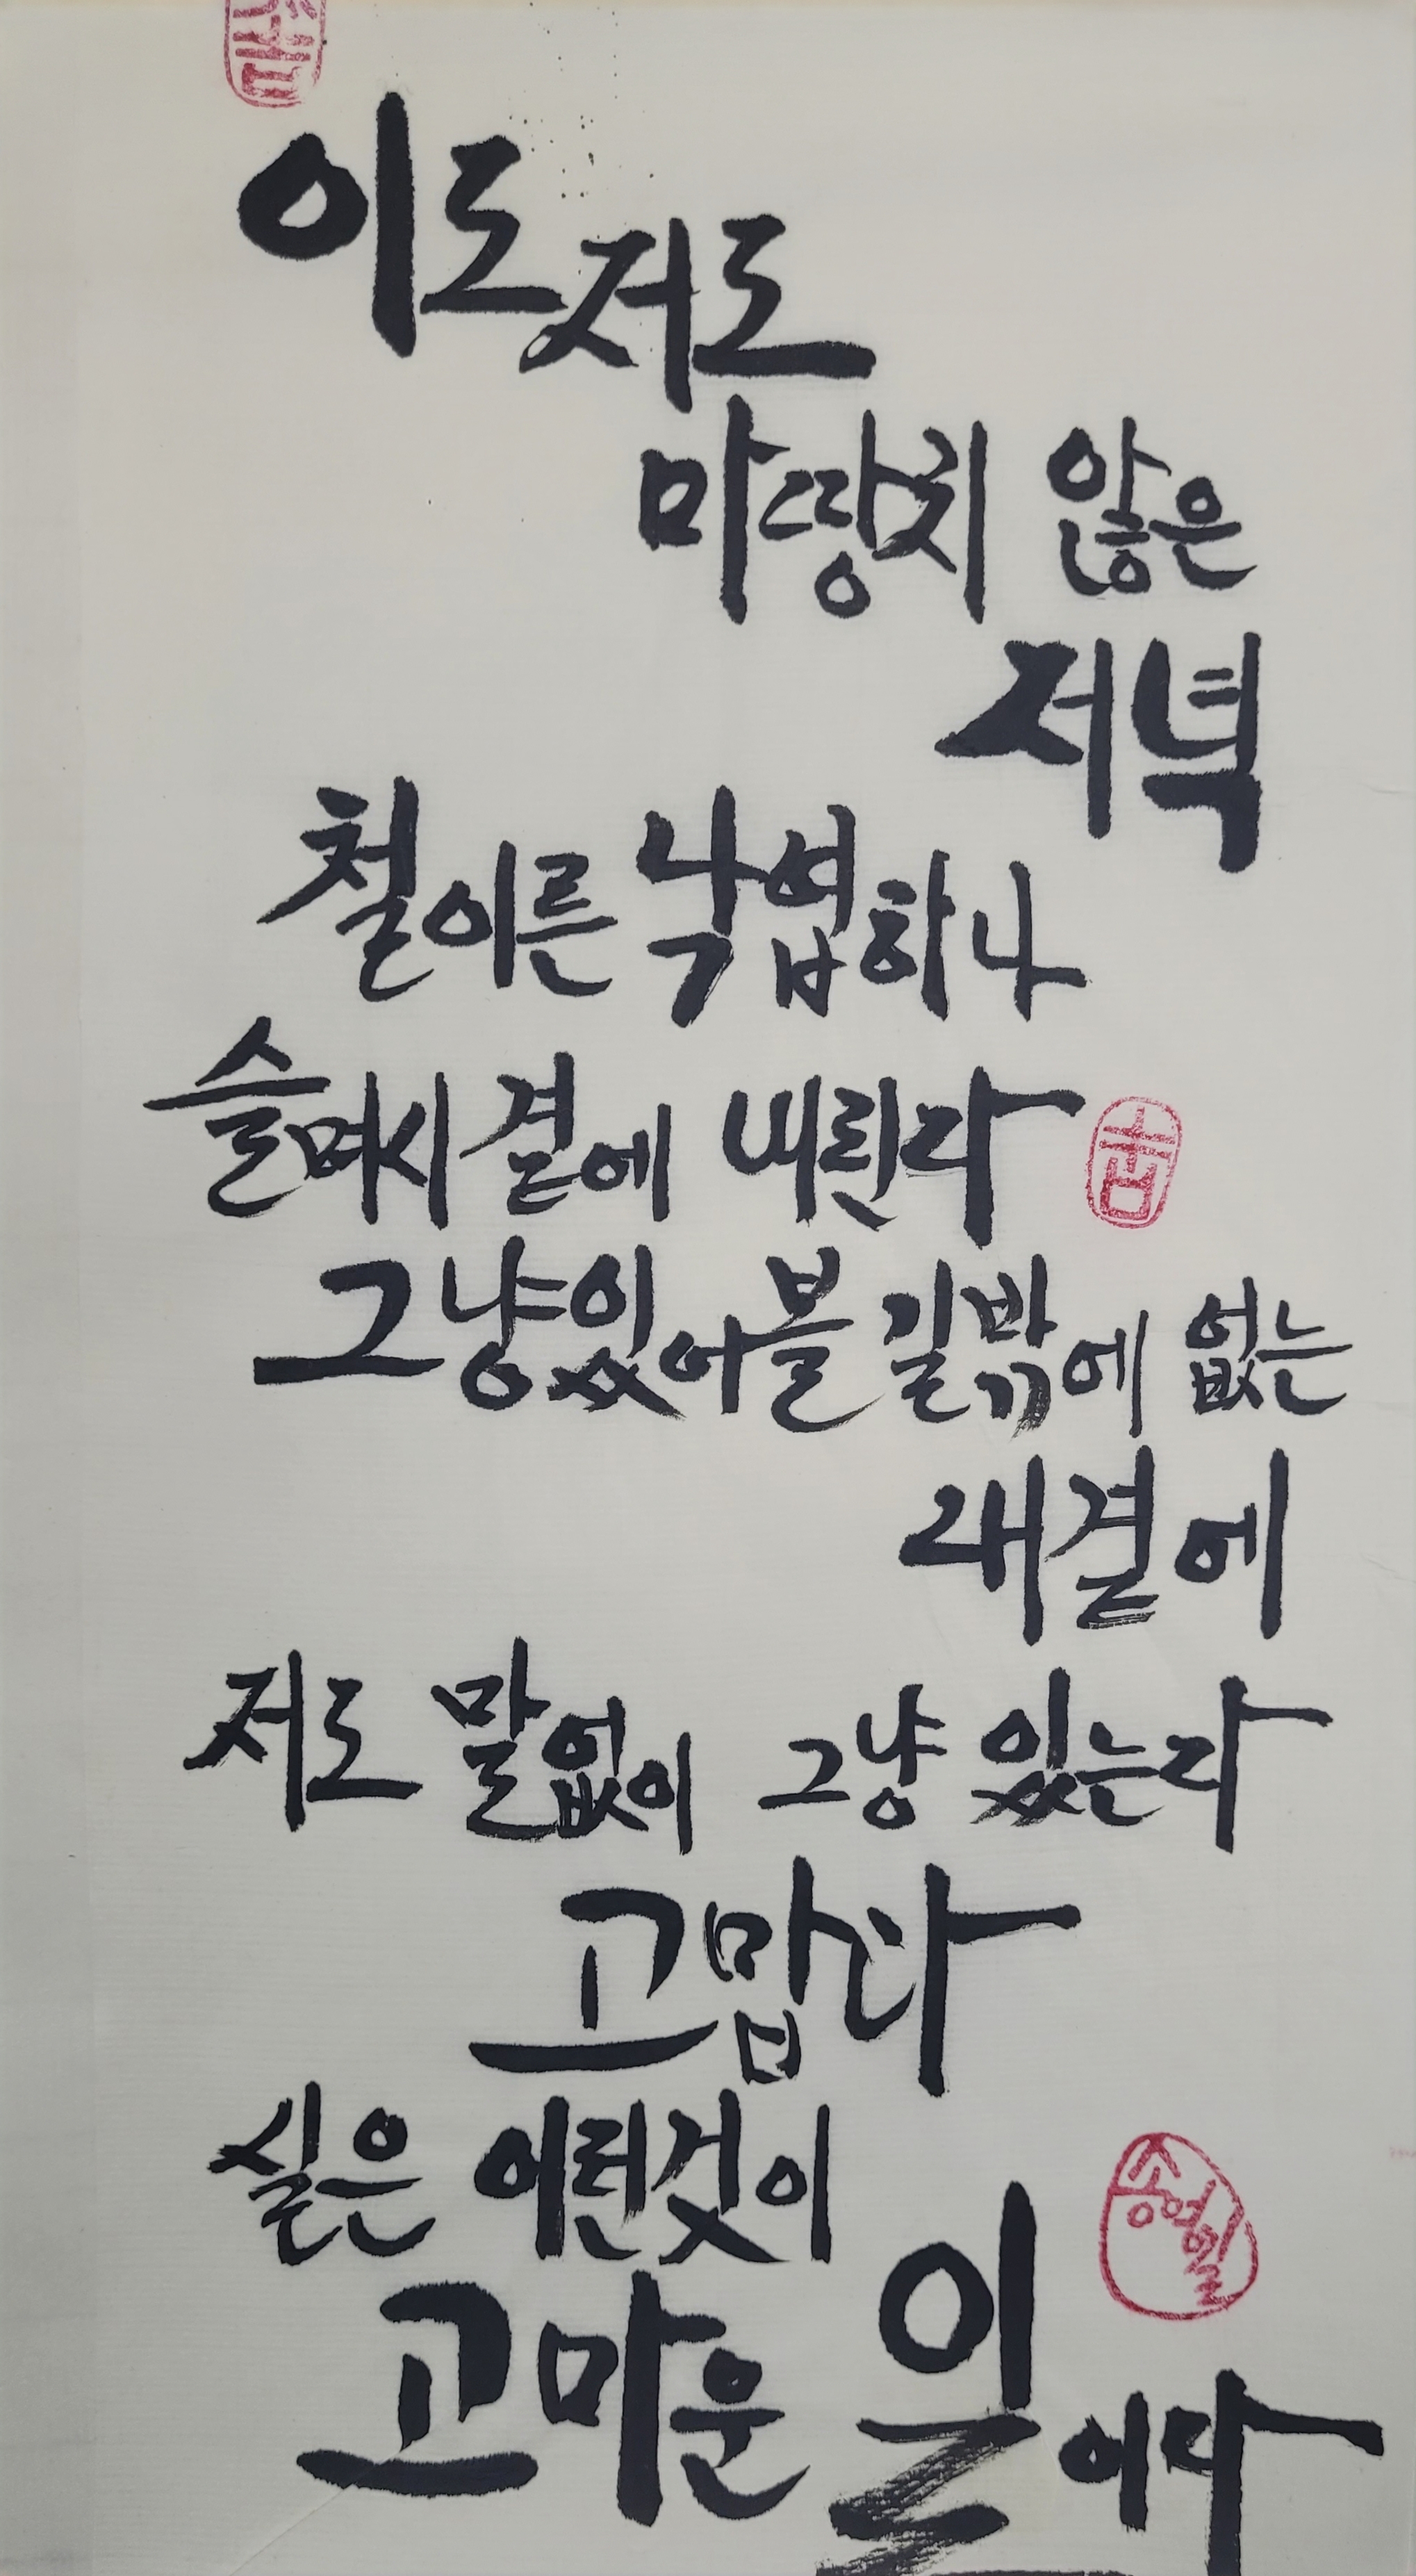 이도저도
마땅치 않은
저녁
철이른 낙엽하나
슬며시 곁에 내린다
그냥있어볼 길밖에 없는
내곁에
저도 말없이 그냥 있는다
고맙다
실은 이런것이
고마운 일이다